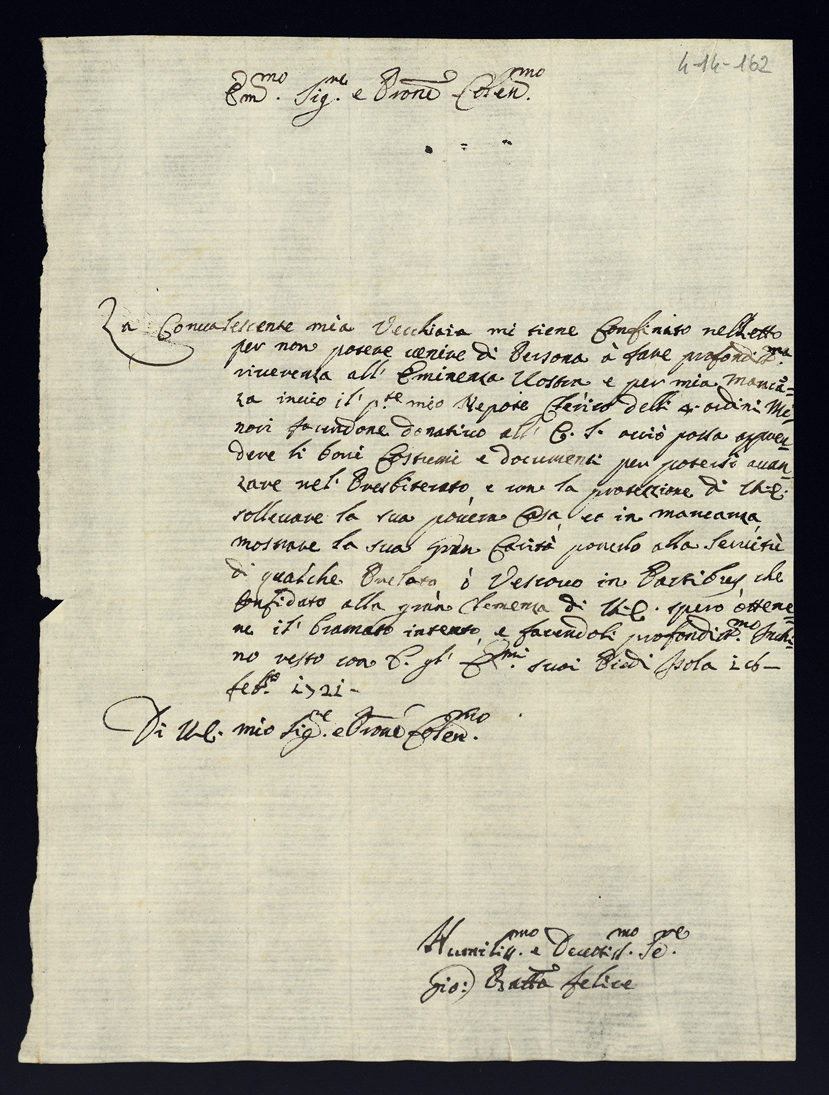 4-14-162
Em.mo Sig.re e Prone Colen.mo
La Convalescente mia Vecchiaia mi tiene Confinato nel Letto
per non potere venire di Persona à fare profondiss.ma
riverenza all' Eminenza Vostra e per mia mancã=
za invio il p.te mio Nepote Clerico delli 4. ordini Mi
nori facendone donativo all' E. S. acciò possa appren=
dere li boni Costumi e documenti per potersi avan
zare nel Presbiterato e con la protezzione di V.E.
sollevare la sua povera Casa, et in mancanza
mostrare la sua gran Carità ponerlo alla Servitù
di qualche Prelato ò Vescovo in Partibus che
Confidato alla gran Clemenza di V.E. spero òttene=
re il bramato intento, e facendoli profondiss.mo Inchi
no resto con gl' E.mi suoi Piedi Isola i 6 –
feb.ro 1721 –
Di V.E. mio Sig.re e Prone Colen.mo
Humiliss.mo e Devotiss.mo Se.re
Gio: Batta Felice